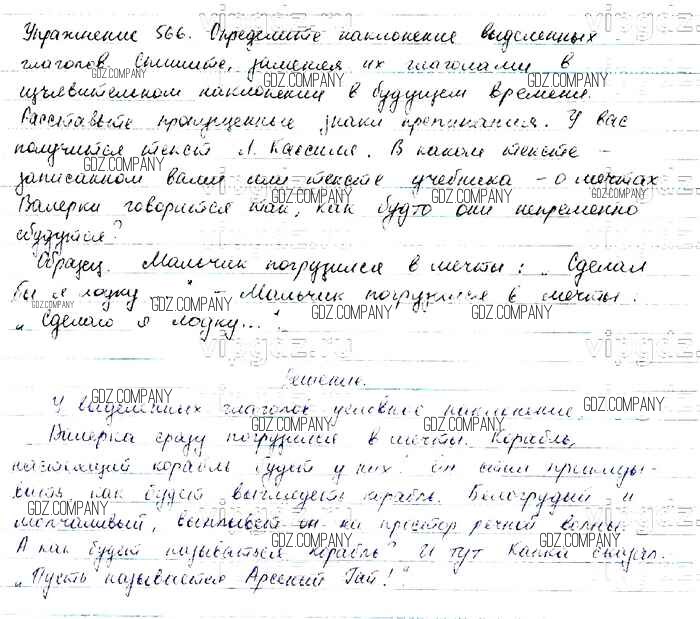 Упражнение 566. Определите наклонение выделенных
глаголов. Спишите, заменяя их глаголами в
изъявительном наклонении в будущем времени.
Расставьте пропущенные знаки препинания. У вас
получится текст Л. Кассиля. В каком тексте –
записанном вами или тексте учебника – о мечтах
Валерки говорится так, как будто они непременно
сбудутся?
Образец. Мальчик погрузился в мечты: „Сделал
бы я лодку..." – Мальчик погрузился в мечты:
„Сделаю я лодку..."
Решение.
У выделенных глаголов условное наклонение.
Валерка сразу погрузился в мечты. Корабль,
настоящий корабль будет у них! Он стал прикиды-
вать как будет выглядеть корабль. Белогрудый и
молчаливый, выплывет он на простор речной волны.
А как будет называться корабль? И тут Капка сказал.
„Пусть называется Арсений Гай!"
vipgdz.ru
GDZ.COMPANY